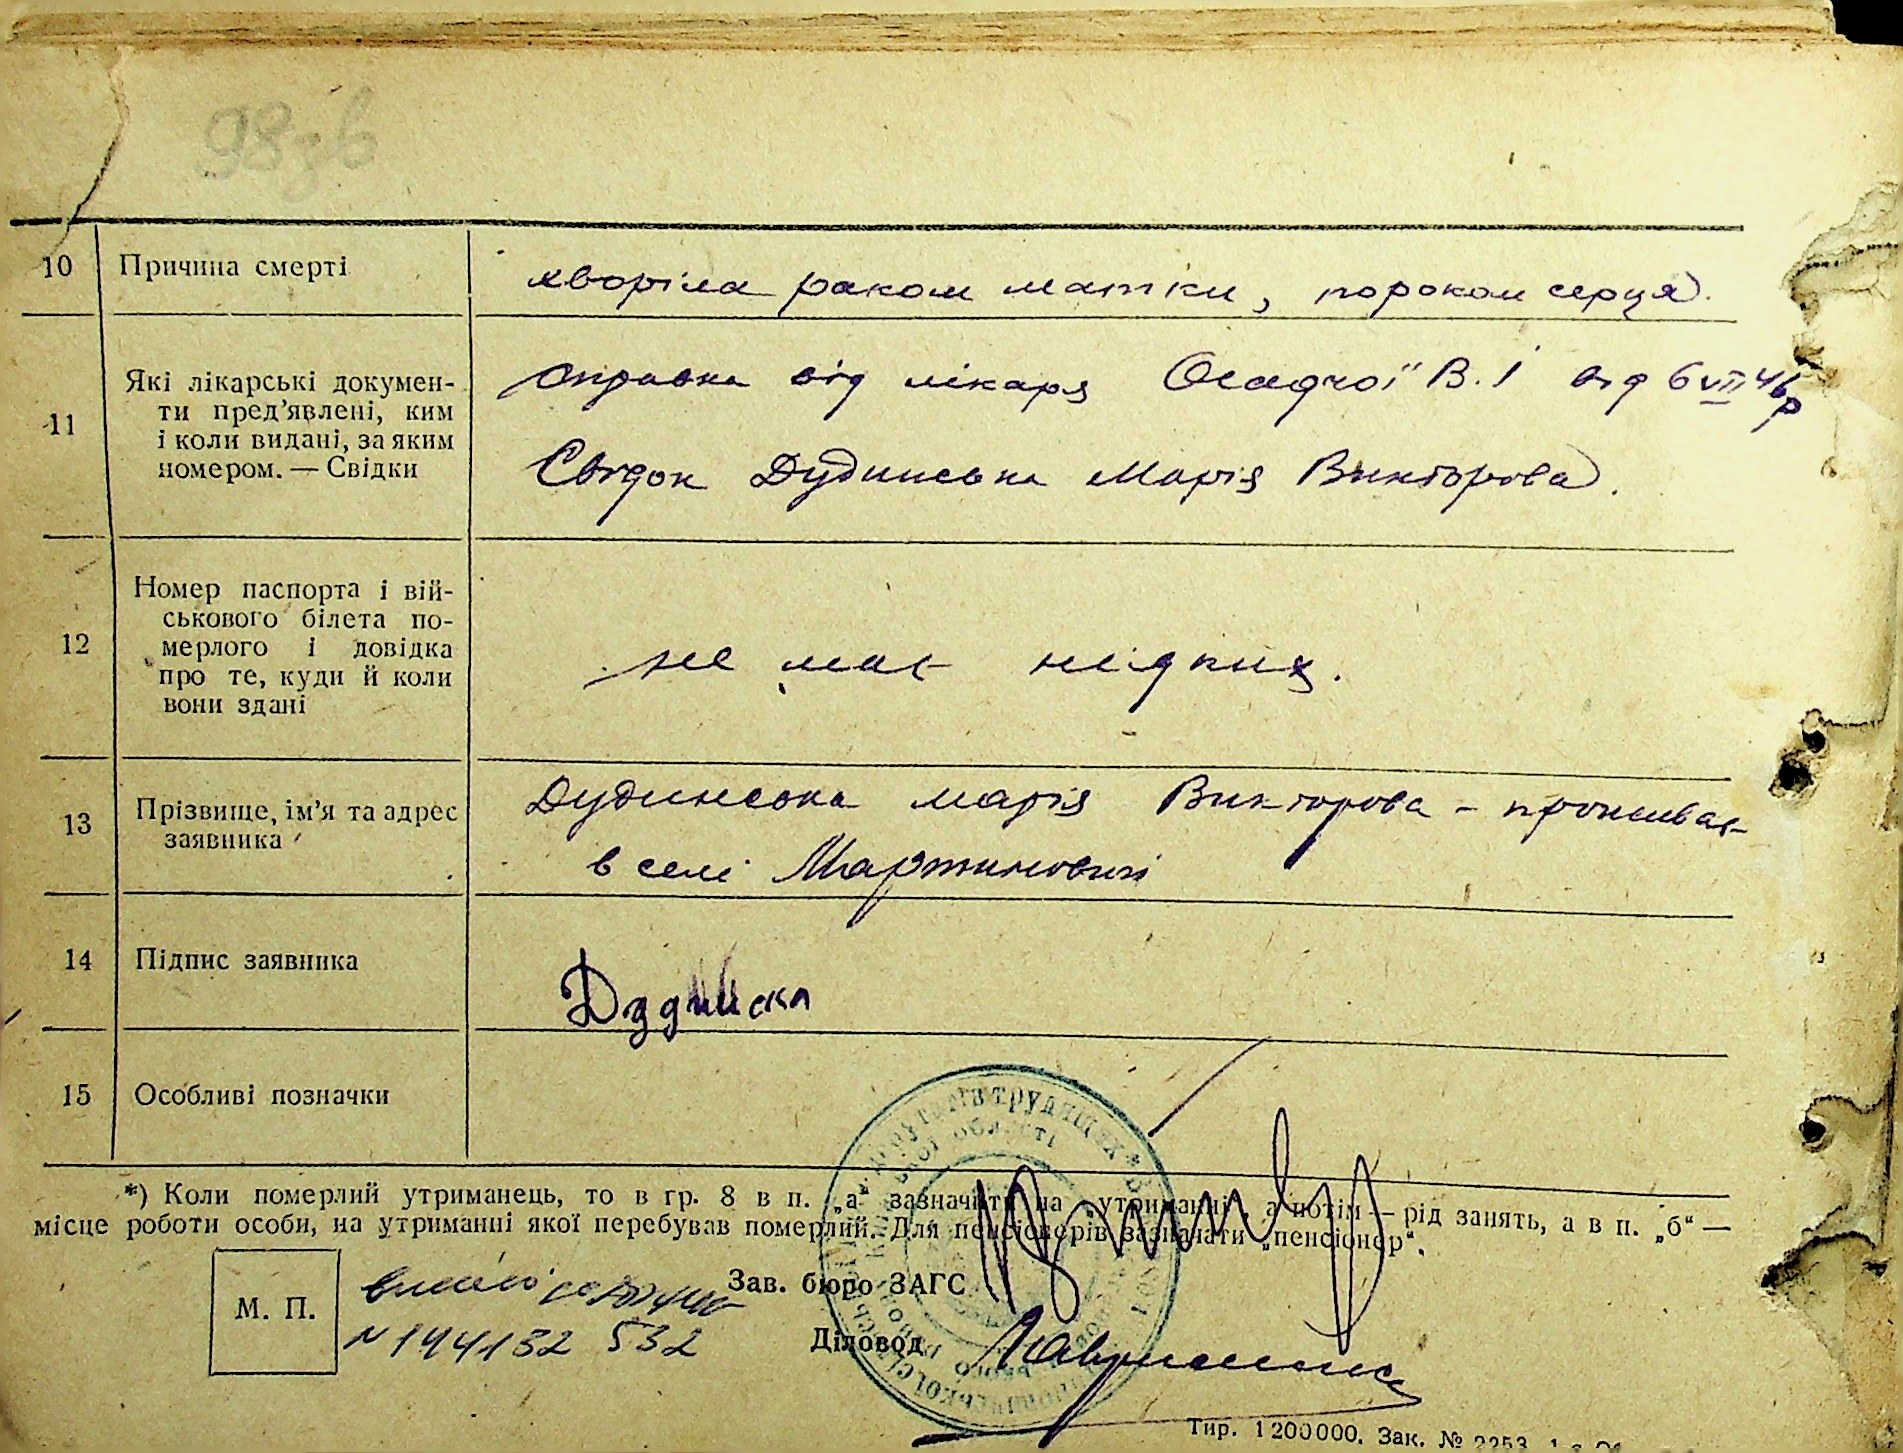 98зв
10 Причина смерті хворіла раком матки, пороком серця.
11 Які лікарські докумен-
ти пред’явлені, ким
і коли видані, за яким
номером. — Свідки
справка від лікаря Осадчої В. І від 6 VII 46 р
Свідок Дудинська Марія Викторова.
12 Номер паспорта і вій-
ськового білета по-
мерлого і довідка
про те, куди й коли
вони здані
не має ніяких.
13 Прізвище, ім’я та адрес
заявника
Дудинська марія Викторова – проживає
в селі Мартиновичі
14 Підпис заявника
15 Особливі позначки
*) Коли померлий утриманець, то в гр. 8 в п. „а“ зазначити на утриманні, а потім — рід занять, а в п. „б“ —
місце роботи особи, на утриманні якої перебував померлий. Для пенсіонерів зазначати „пенсіонер“.
Зав. бюро ЗАГС
М. П.
N 144132 532
Діловод
Тир. 1200000. Зак. № 2253